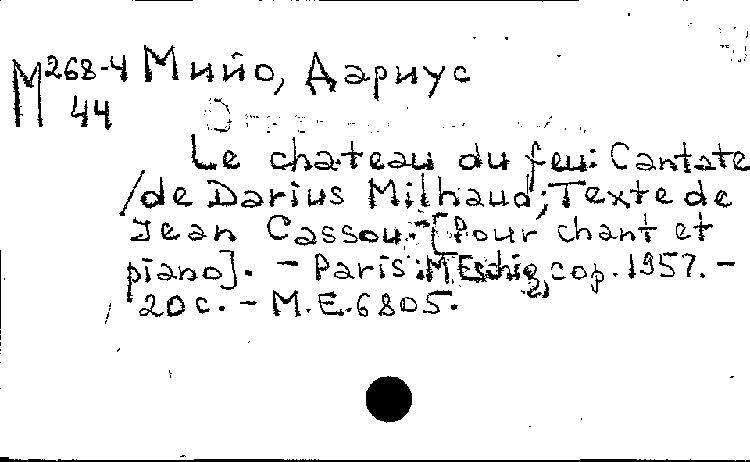 М 268-4 Мийо, Дариус
44
Le chateau du feu: Cantate
/de Darius Milhaud; Texte de
Jean Cassou.-[Pour chant et
piano]. - Paris: M Eschig, cop. 1957. -
20 c. - M.E.6805.